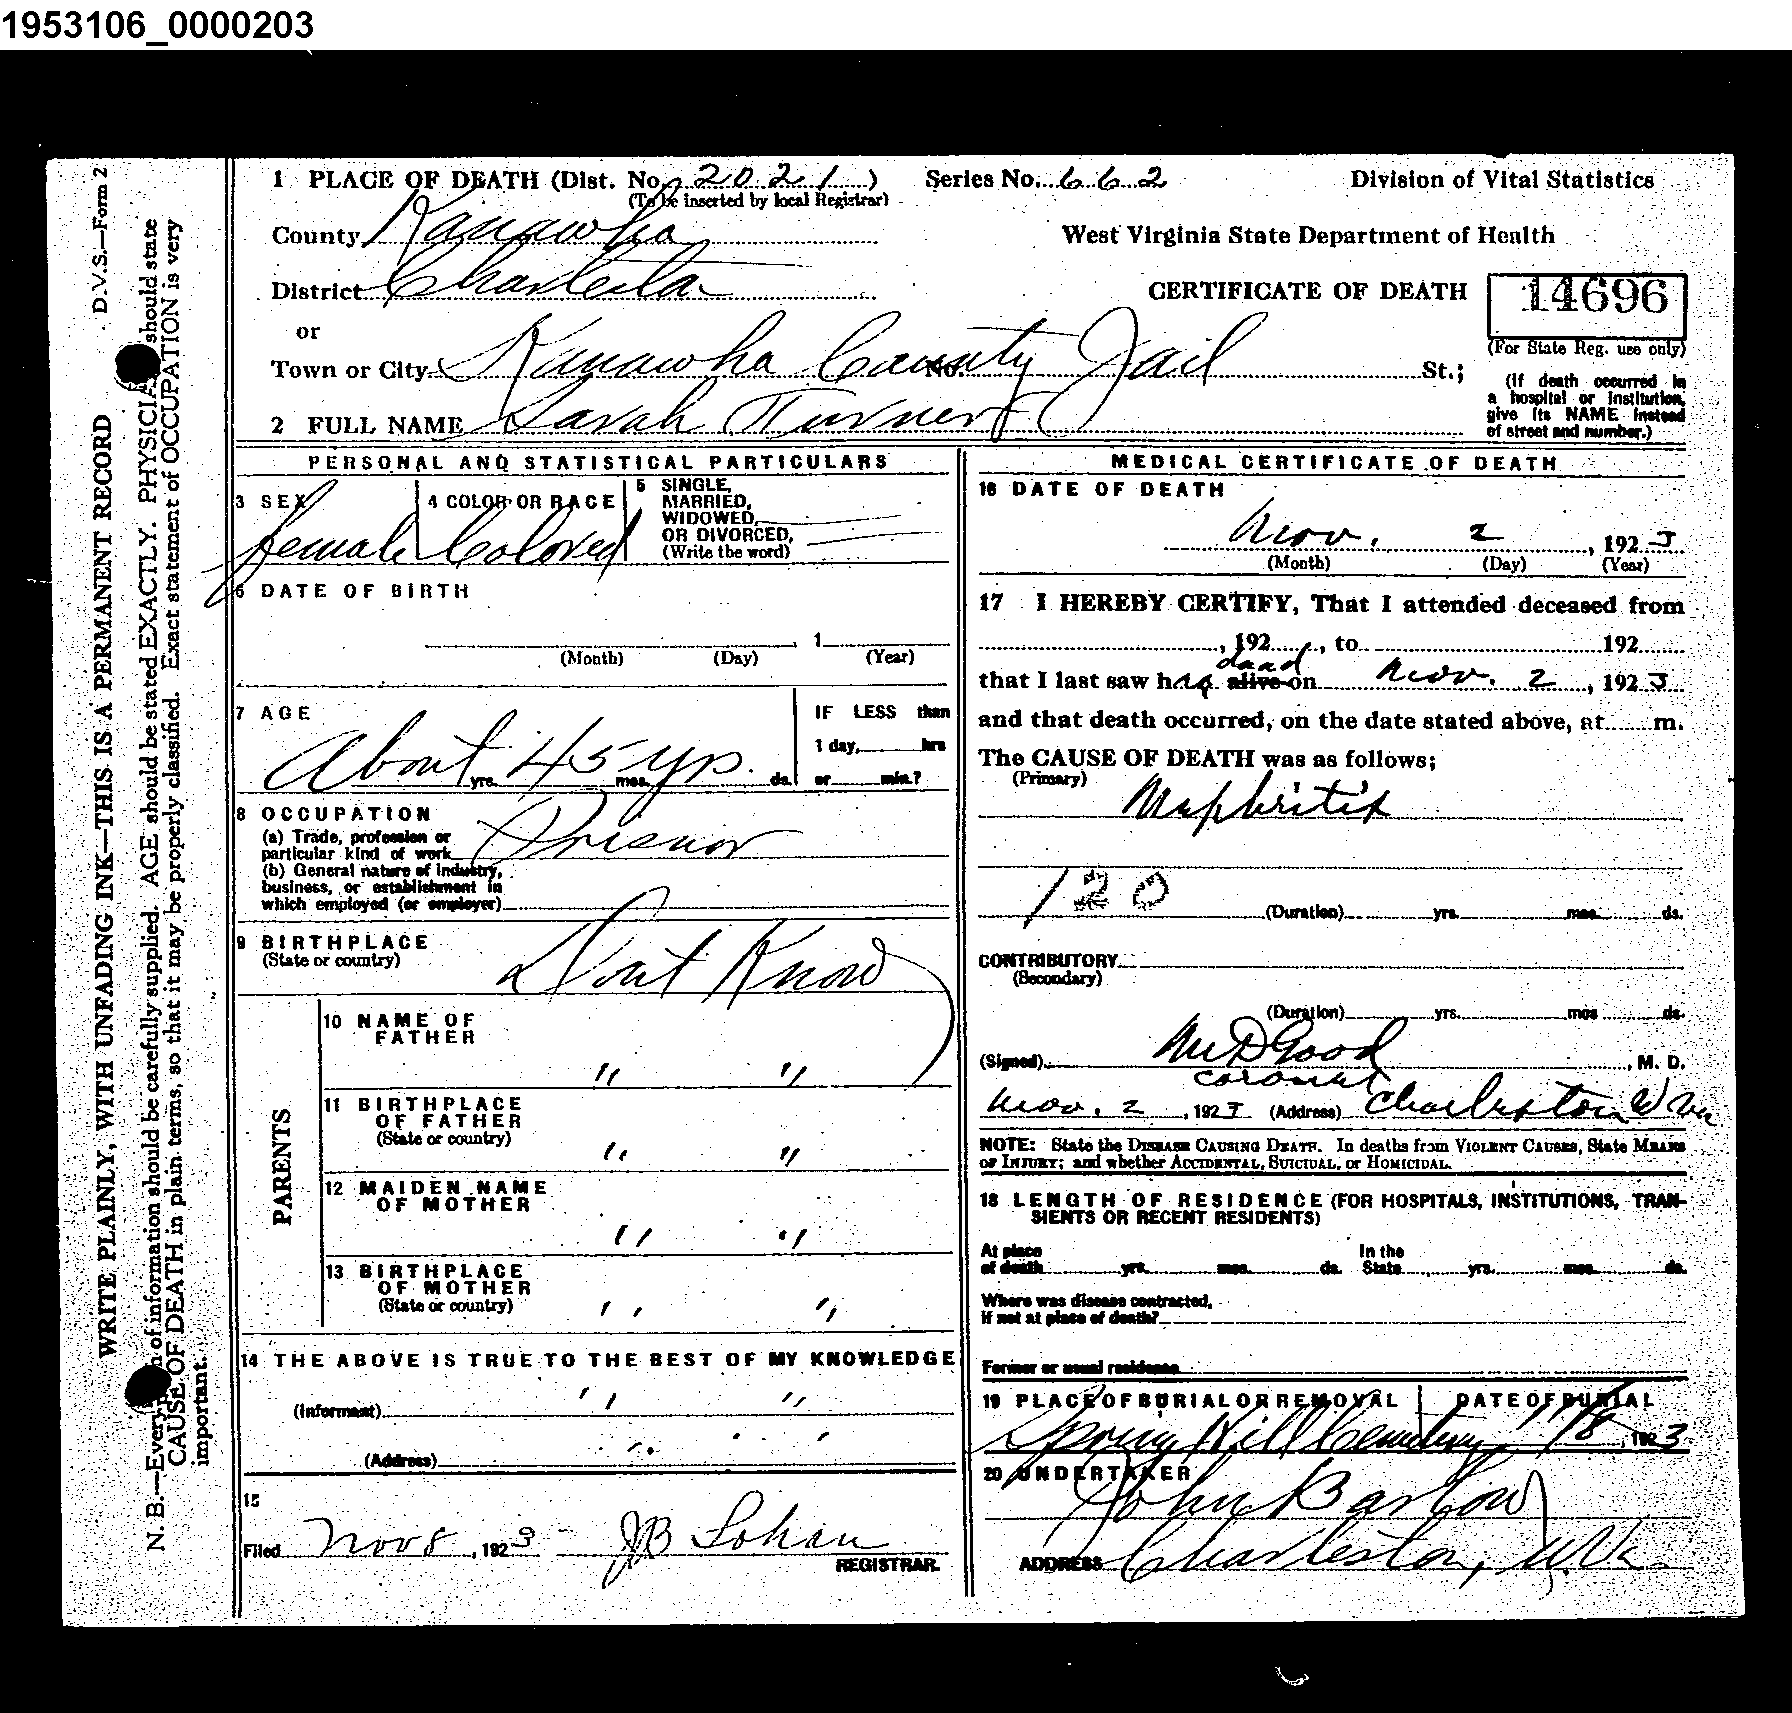 1953106_0000203
1 PLACE OF DEATH (Dist. No. 2021) Series No. 662 Division of Vital Statistics
(To be inserted by local Registrar)
County Kanawha West Virginia State Department of Health
District Charleston CERTIFICATE OF DEATH 14696
or
(For State Reg. use only)
Town or City Kanawha County Jail No. St.;
(If death occurred in
a hospital or institution,
give its NAME instead
of street and number.)
2 FULL NAME Sarah Turner
PERSONAL AND STATISTICAL PARTICULARS
3 SEX 4 COLOR OR RACE 5 SINGLE,
MARRIED,
WIDOWED,
OR DIVORCED,
(Write the word)
female Colored
6 DATE OF BIRTH
1
(Month) (Day) (Year)
7 AGE IF LESS than
1 day, hrs
or min.?
About 45 yrs.
yrs. mos. ds.
8 OCCUPATION
(a) Trade, profession or
particular kind of work Prisnor
(b) General nature of industry,
business, or establishment in
which employed (or employer)
9 BIRTHPLACE
(State or country) Dont Know
PARENTS
10 NAME OF
FATHER " "
11 BIRTHPLACE
OF FATHER
(State or country) " "
12 MAIDEN NAME
OF MOTHER " "
13 BIRTHPLACE
OF MOTHER
(State or country) " "
14 THE ABOVE IS TRUE TO THE BEST OF MY KNOWLEDGE
(Informant) " "
(Address) " "
15
Filed Nov 8, 1923 JB Lohan
REGISTRAR.
MEDICAL CERTIFICATE OF DEATH
16 DATE OF DEATH
Nov. 2, 1923
(Month) (Day) (Year)
17 I HEREBY CERTIFY, That I attended deceased from
, 192 , to 192
dead
that I last saw h alive on Nov. 2, 1923
and that death occurred, on the date stated above, at m.
The CAUSE OF DEATH was as follows:
(Primary)
Nephritis
120
(Duration) yrs. mos. ds.
CONTRIBUTORY
(Secondary)
(Duration) yrs. mos ds.
(Signed) McDGood, M. D.
coroner
Nov. 2, 1923 (Address) Charleston W Va
NOTE: State the DISEASE CAUSING DEATH. In deaths from VIOLENT CAUSES, State MEANS
OF INJURY; and whether ACCIDENTAL, SUICIDAL, or HOMICIDAL.
18 LENGTH OF RESIDENCE (FOR HOSPITALS, INSTITUTIONS, TRAN-
SIENTS OR RECENT RESIDENTS)
At place In the
of death yrs. mos. ds. State yrs. mos. ds.
Where was disease contracted,
if not at place of death?
Former or usual residence
19 PLACE OF BURIAL OR REMOVAL DATE OF BURIAL
Spring Hill Cemetery 11/8, 1923
20 UNDERTAKER
John Barlow
ADDRESS Charleston, W.Va.
D.V.S.—Form 2
WRITE PLAINLY, WITH UNFADING INK—THIS IS A PERMANENT RECORD
N. B.—Every of information should be carefully supplied. AGE should be stated EXACTLY. PHYSICIA should state
CAUSE OF DEATH in plain terms, so that it may be properly classified. Exact statement of OCCUPATION is very
important.